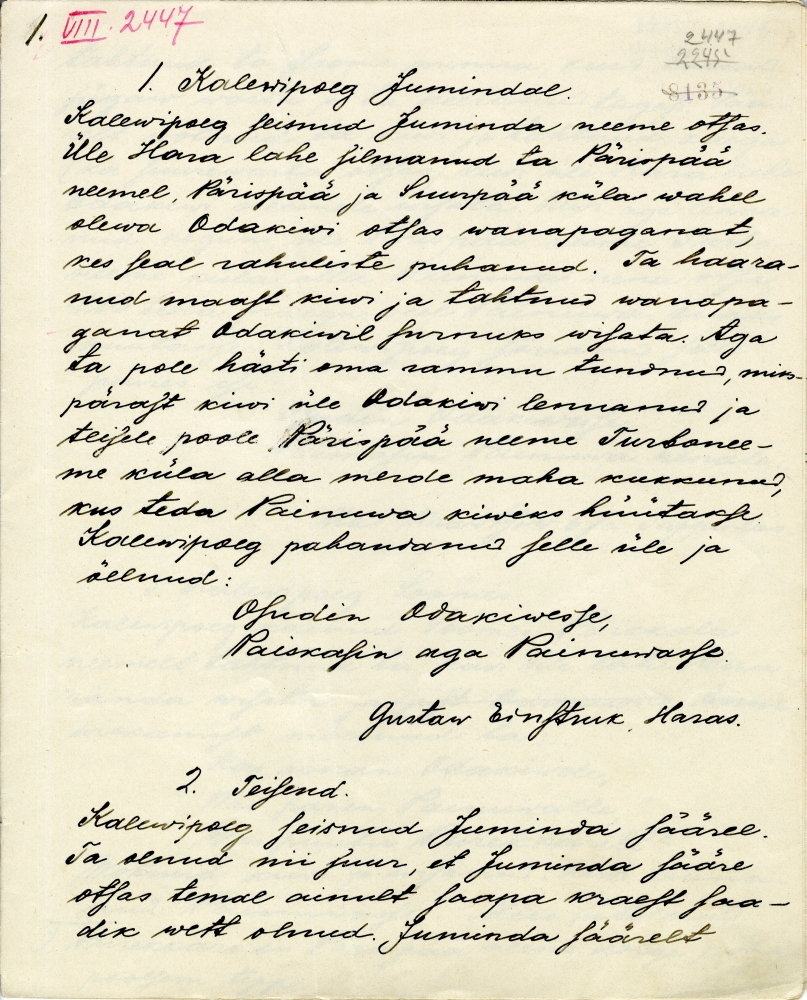 1. VIII. 2447
2447
2245
8135
1. Kalewipoeg Jumindal.
Kalewipoeg seisnud Juminda neeme otsas.
Üle Hara lahe silmanud ta Pärispää
neemel, Pärispää ja Suurpää küla wahel
olewa Odakiwi otsas wanapaganat,
kes seal rahuliste puhanud. Ta haara-
nud maast kiwi ja tahtnud wanapa-
ganat Odakiwil surnuks wisata. Aga
ta pole hästi oma rammu tundnud, miks-
pärast kiwi üle Odakiwi lennanud ja
teisele poole Pärispää neeme Turbonee-
me küla alla merde maha kukkunud,
kus teda Painuwa kiwiks hüütakse.
Kalewipoeg pahandanud selle üle ja
öelnud:
Osudin Odakiwesse,
Paiskasin aga Painuwasse.
Gustaw Einstruk, Haras.
2. Teisend.
Kalewipoeg seisnud Juminda säärel.
Ta olnud ni suur, et Juminda sääre
otsas temal ainult saapa kraest saa-
dik wett olnud. Juminda säärelt